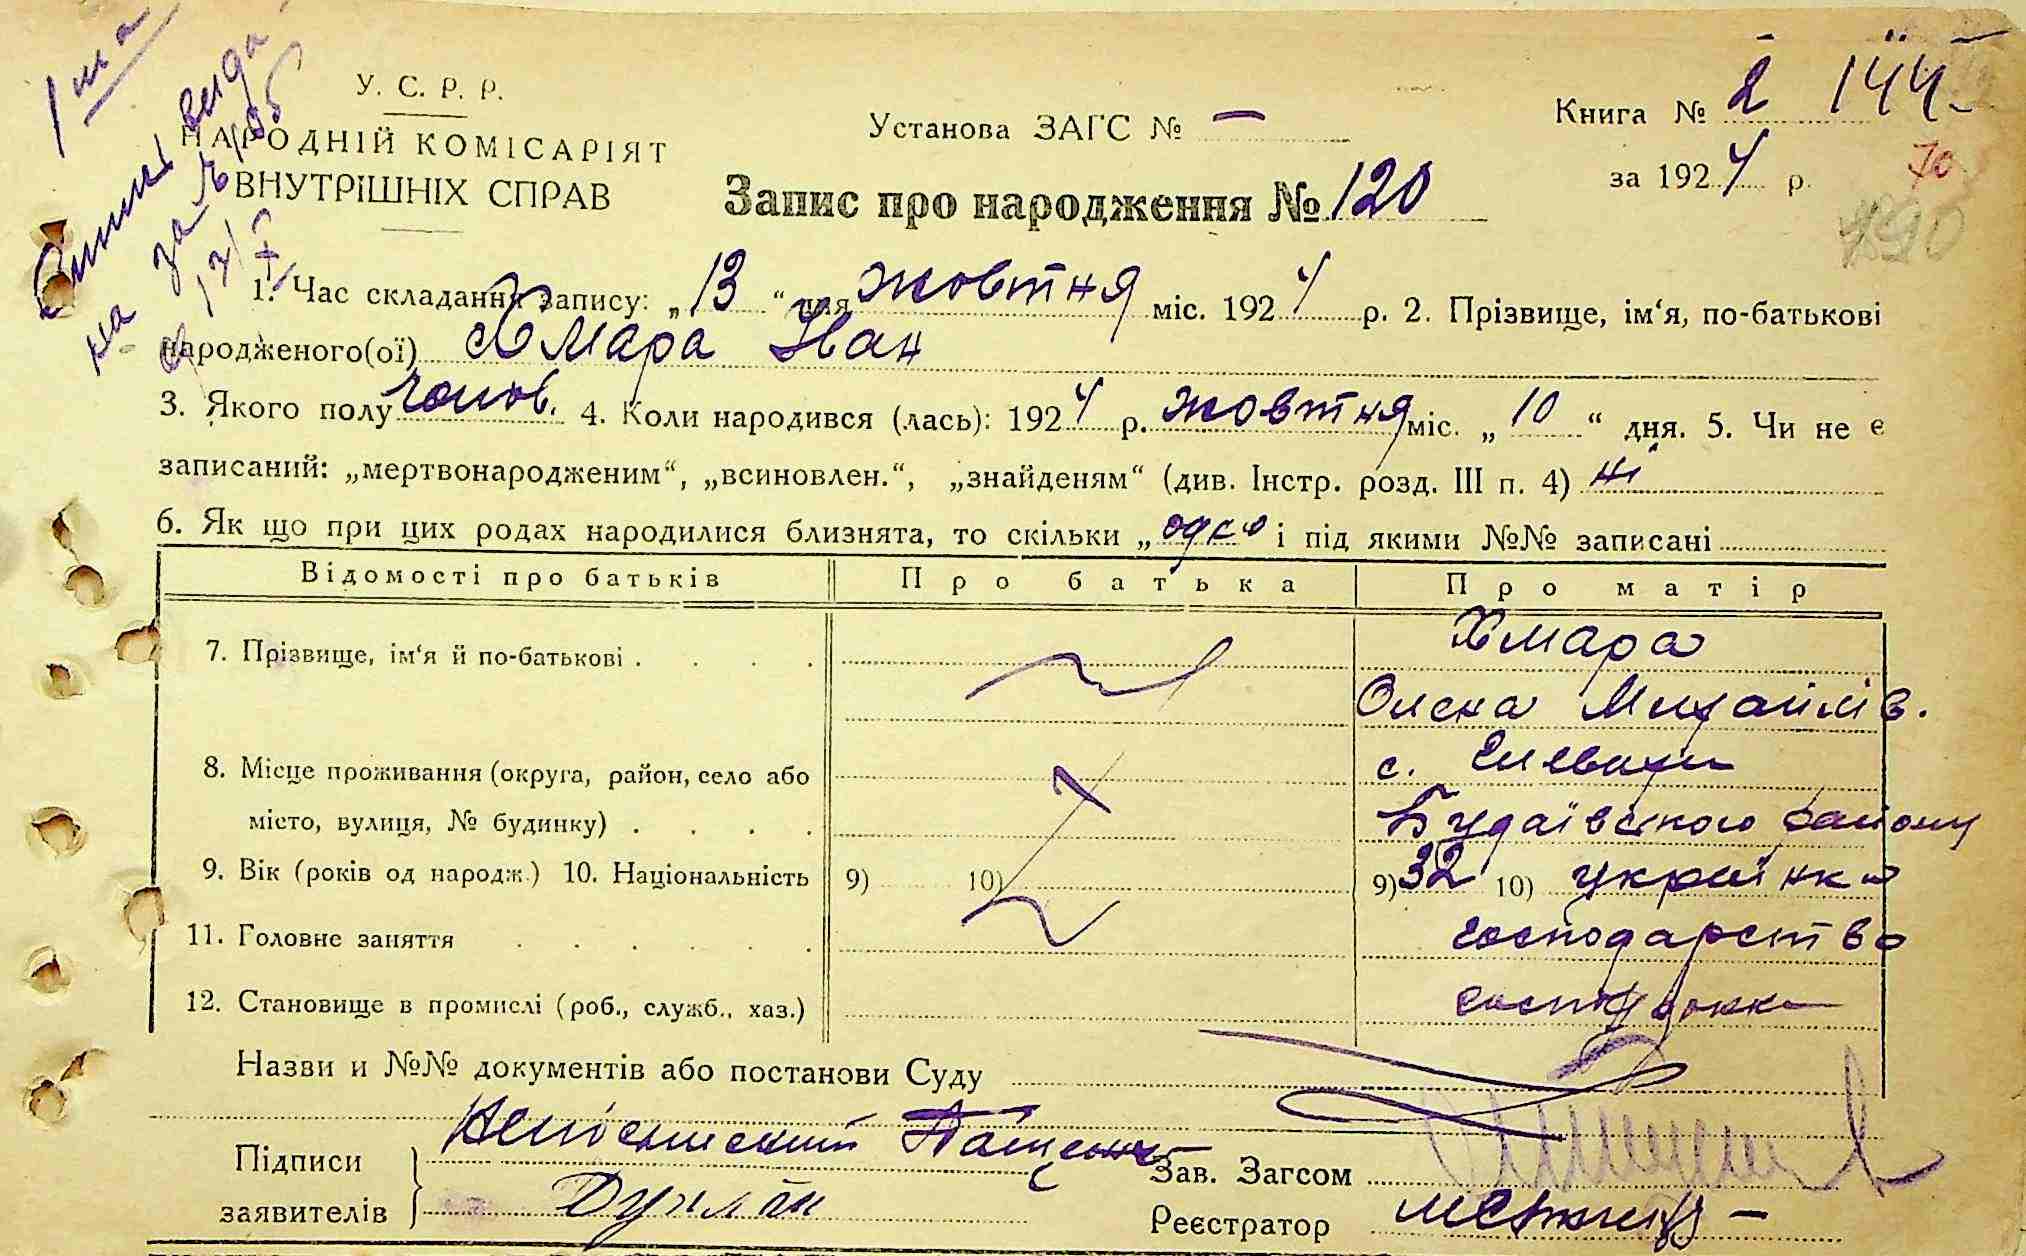 1 ша
У. С. Р. Р.
НАРОДНІЙ КОМІСАРІЯТ
ВНУТРІШНІХ СПРАВ
Установа ЗАГС № —
Книга № 2 144
за 1924 р.
70
Запис про народження № 120
1. Час складання запису: „13“ дня жовтня міс. 1924 р. 2. Прізвище, ім‘я, по-батькові
народженого(ої) Хмара Іван
3. Якого полу чолов. 4. Коли народився (лась): 1924 р. жовтня міс. „10“ дня. 5. Чи не є
записаний: „мертвонародженим“, „всиновлен.“, „знайденям“ (див. Інстр. розд. III п. 4) ні
6. Як що при цих родах народилися близнята, то скільки „одно і під якими №№ записані
Відомості про батьків Про батька Про матір
7. Прізвище, ім‘я й по-батькові . . . . Хмара
Олена Михайлів.
8. Місце проживання (округа, район, село або с.
місто, вулиця, № будинку) . . . . Будаївського району
9. Вік (років од народж.) 10. Національність 9) 10) 9) 32 10) українка
11. Головне заняття . . . . . . господарство
12. Становище в промислі (роб., служб., хаз.)
Назви и №№ документів або постанови Суду
Підписи
заявителів
Зав. Загсом
Реєстратор